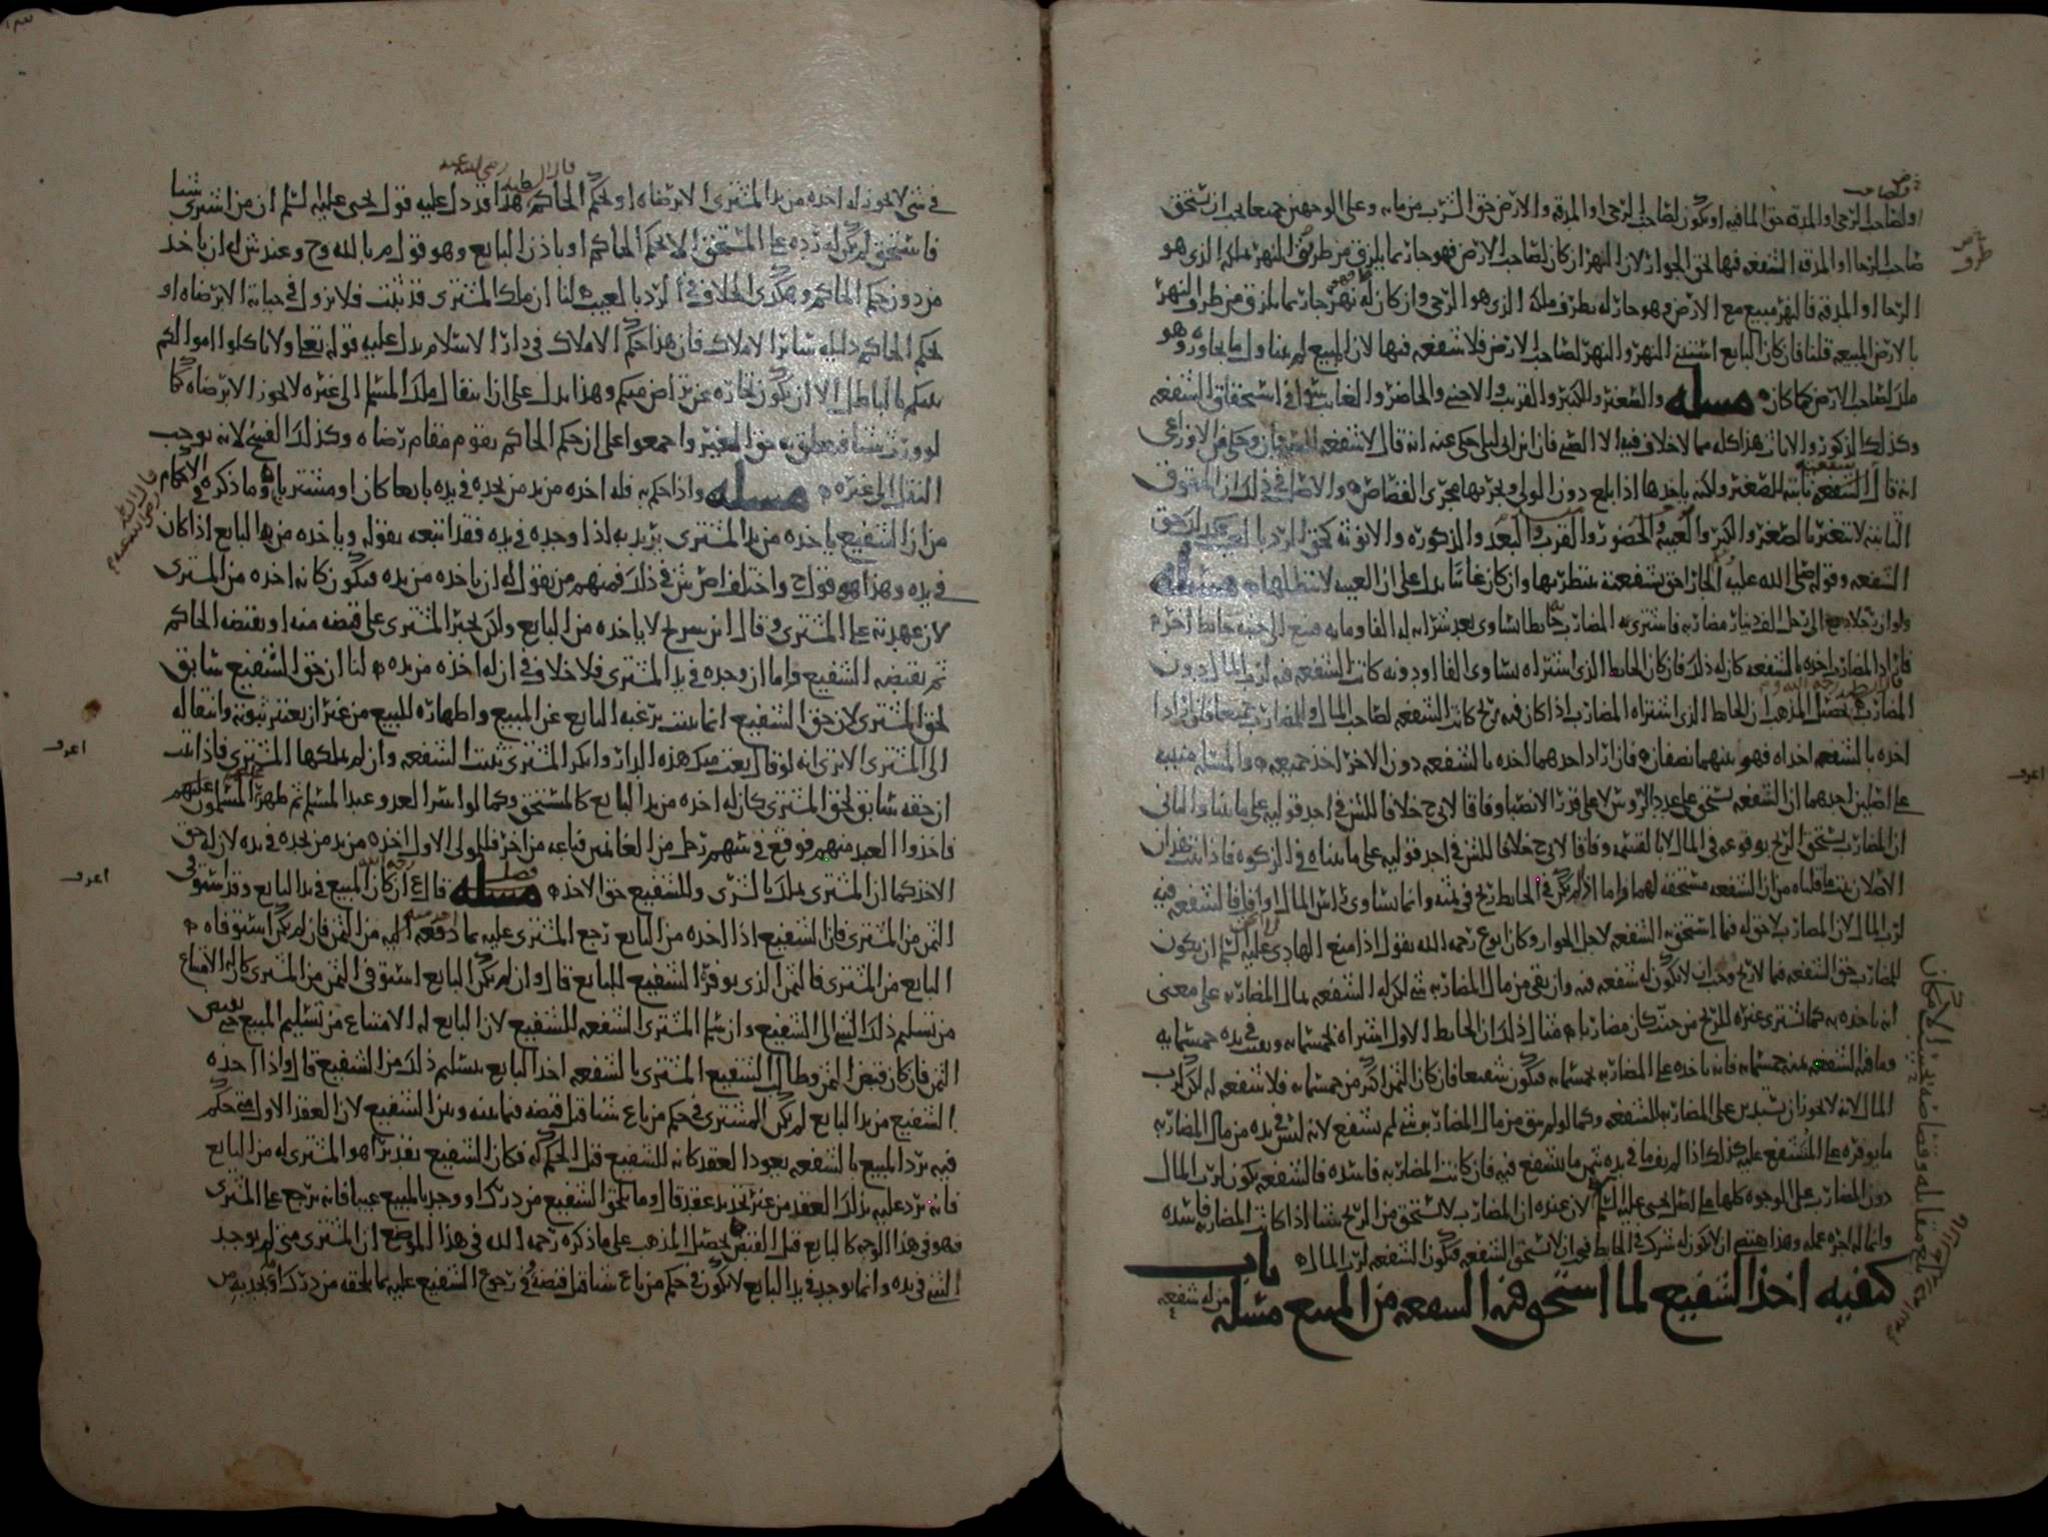 او لصاحب الرحى او المدقه حق الما فيه او يكون لصاحب الرحى او المدقه والارض حق الشرب من مايه وعلى الوجهين جميعا يجب ان يستحق
صاحب الرحا او المدقه الشفعه فيها لحق الجوار لان النهر ان كان لصاحب الارض فهو جار بما يلزق من طرف النهر ملكه الذي هو
الرحا او المدقه فالنهر مبيع مع الارض وهو جار له بطرف ملكه الذي هو الرحى وان كان له نهر جار بما يلزق من طرف النهر
بالارض المبيعه قلنا فان كان البايع استثنى النهر والنهر لصاحب الارض فلا شفعه فيها لان المبيع لم يتناول ما يجاوره وهو
ملك لصاحب الارض كما كان مسله والصغير والكبير والقريب والاجنبي والحاضر والغايب سوا في استحقاق الشفعه
وكذلك الذكور والاناث هذا كله مما لا خلاف فيه الا الصبي فان ابن ابي ليلى حكي عنه انه قال لا شفعه للصبي وحكي عن الاوزاعي
انه قال الشفعه ثابته للصغير ولكنه ياخذها اذا بلغ دون الولي ويجريها مجرى القصاص والاصل في ذلك ان الحقوق
الثابته لا تتغير بالصغر والكبر والغيبه والحضور والقرب والبعد والذكوره والانوثه كحق الرد بالعيب كذلك حق
الشفعه وقوله صلى الله عليه الجار احق بشفعته ينتظر بها وان كان غائبا يدل على ان الغيبه لا تبطلها مسله
ولو ان رجلا دفع الى رجل الف دينار مضاربه فاشترى به المضارب حايطا يساوي بعد شرائه له الفا ومايه فبيع الى جنبه حايط اخر
فاراد المضارب اخذه بالشفعه كان له ذلك فان كان الحايط الذي اشتراه يساوي الفا او دونه كانت الشفعه فيه لرب المال دون
المضارب تحصيل المذهب ان الحايط الذي اشتراه المضارب اذا كان فيه ربح كانت الشفعه لصاحب المال والمضارب جميعا فان ارادا
اخذه بالشفعه اخذاه فهو بينهما نصفان فان اراد احدهما اخذه بالشفعه دون الاخر اخذ جميعه والمسله مبنيه
على اصلين احدهما ان الشفعه تستحق على عدد الروس لا على قدر الانصبا وفاقا لابي ح خلافا للش في احد قوليه على ما بينا والثاني
ان المضارب يستحق الربح بوقوعه في المال لا بالقسمه وفاقا لابي ح خلافا للش في احد قوليه على ما بيناه في الزكوه فاذا ثبت هذان
الاصلان ثبت ما قلناه من ان الشفعه مستحقه لهما واما اذا لم يكن في الحايط ربح في ثمنه وانما يساوي راس المال او اقل فالشفعه فيه
لرب المال لان المضارب لا حق له فيما استحق به الشفعه لاجل الجوار وكان ابو ع رحمه الله يقول اذا منع الهادي عليه السلم ان يكون
للمضارب حق الشفعه فيما لا ربح وجب ان لا يكون له شفعه فيه وان بقي من مال المضاربه شي لكن له الشفعه بمال المضاربه على معنى
انه ياخذه به كما يشتري غيره للربح من حيث كان مضاربا مثال ذلك ان الحايط الاول اشتراه بخمسمايه وبقيت في يده خمسمايه
وما فيه الشفعه ثمنه خمسمايه فانه ياخذه على المضاربه بخمسمايه فيكون شفيعا فان كان الثمن اكثر من خمسمايه فلا شفعه له لكن لرب
المال لانه لا يجوز ان يستدين على المضاربه للشفعه وكما لو لم يبق من مال المضاربه شي لم يستشفع لانه ليس في يده من مال المضاربه
ما يوفره على المستشفع عليه كذلك اذا لم يف ما في يده بثمن ما يستشفع فيه فان كانت المضاربه فاسده فالشفعه يكون لرب المال
دون المضارب على الوجوه كلها على اصل يحيى عليه السلم لان عنده ان المضارب لا يستحق من الربح شيا اذا كانت المضاربه فاسده
وانما له اجره عمله وهذا يقتضي ان لا يكون له شرك في الحايط فيجب ان لا يستحق الشفعه فيكون الشفعه لرب المال باب
كيفيه اخذ الشفيع لما استحق فيه الشفعه من المبيع مسله من له شفعه
في شي لا يجوز له اخذه من يد المشتري الا برضاه او بحكم الحاكم هذا قد دل عليه قول يحيى عليه السلم ان من اشترى شيا
فاستحق لم يكن له رده على المستحق الا بحكم الحاكم او باذن البايع وهو قول م بالله وح وعند ش له ان ياخذ
من دون حكم الحاكم وهكذي الخلاف في الرد بالعيب لنا ان ملك المشتري قد ثبت فلا يزول في حياته الا برضاه او
بحكم الحاكم دليله سائر الاملاك فان هذا حكم الاملاك في دار الاسلام يدل عليه قوله تعلى ولا تاكلوا اموالكم
بينكم بالباطل الا ان تكون تجاره عن تراض منكم وهذا يدل على ان انتقال ملك المسلم الى غيره لا يجوز الا برضاه كما
لو ورث شيا فتعلق به حق الغير واجمعوا على ان حكم الحاكم يقوم مقام رضاه وكذلك الفسخ لانه يوجب
النقل الى غيره مسله واذا حكم به فله اخذه من يد من يجده في يده بايعا كان او مشتريا وما ذكره في الاحكام
من ان الشفيع ياخذه من يد المشتري يريد به اذا وجده في يده فقد اتبعه بقوله وياخذه من يد البايع اذا كان
في يده وهذا هو قول ح واختلف اص ش في ذلك فمنهم من يقول له ان ياخذه من يده فيكون كانه اخذه من المشتري
لان عهدته على المشتري وقال ابن سريج لا ياخذه من البايع ولكن يجبر المشتري على قبضه منه او يقبضه الحاكم
ثم يقبضه الشفيع فاما ان وجده في يد المشتري فلا خلاف في ان له اخذه من يده لنا ان حق الشفيع سابق
لحق المشتري لان حق الشفيع انما يثبت برغبه البايع عن المبيع واظهاره للبيع من غير ان يعتبر ثبوته وانتقاله
الى المشتري الا ترى انه لو قال بعت منك هذه الدار وانكر المشتري ثبتت الشفعه وان لم يملكها المشتري فاذا ثبت
ان حقه سابق لحق المشتري كان له اخذه من يد البايع كالمستحق وكما لو اسر العدو عبدا لمسلم ثم ظهر المسلمون عليهم
فاخذوا العبد منهم فوقع في سهم رجل من الغانمين فباعه من اخر فللمولى الاول اخذه من يد من يجده في يده لان له حق
الاخذ كما ان المشتري يملك بالشرى وللشفيع حق الاخذ مسله قال ع ان كان المبيع في يد البايع وقد استوفى
الثمن من المشتري فان الشفيع اذا اخذه من البايع رجع المشتري عليه بما دفعه اليه من الثمن فان لم يكن استوفاه
البايع من المشتري فالثمن الذي يوفره الشفيع للبايع قال وان لم يكن البايع استوفى الثمن من المشتري كان له الامتناع
من تسليم ذلك الشي الى الشفيع وان سلم المشتري الشفعه للشفيع لان البايع له الامتناع من تسليم المبيع حتى يقبض
الثمن فان كان قبض الثمن وطالب الشفيع المشتري بالشفعه اخذ البايع بتسليم ذلك من الشفيع قال واذا اخذه
الشفيع من يد البايع لم يكن المشتري في حكم من باع شيا قبل قبضه فيما بينه وبين الشفيع لان العقد الاول في حكم
فيه برد المبيع بالشفعه يعود العقد كانه للشفيع قبل الحكم له فكان الشفيع بقدر شراه هو المشتري له من البايع
فانه يرد عليه بذلك العقد من غير تجديد عقد قال وما يلحق الشفيع من درك او وجد بالمبيع عيبا فانه يرجع على المشتري
فهو في هذا الوجه كالبايع قبل القبض تحصيل المذهب على ما ذكره رحمه الله في هذا الموضع ان المشتري متى لم يوجد
الشي في يده وانما يوجد في يد البايع لا يكون في حكم من باع شيا قبل قبضه وفي رجوع الشفيع عليه بما يلحقه من درك او يجد به من